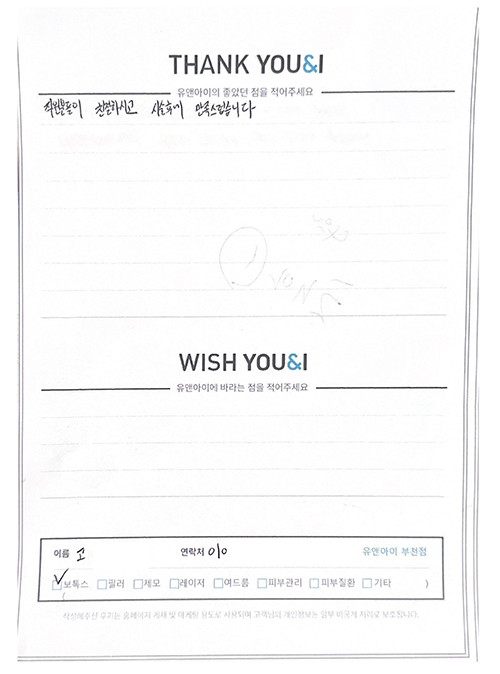 THANK YOU&I
유앤아이의 좋았던 점을 적어주세요
직원분들이 친절하시고 시술후에 만족스럽습니다
WISH YOU&I
유앤아이에 바라는 점을 적어주세요
이름 고 연락처 010 유앤아이 부천점
보톡스 필러 제모 레이저 여드름 피부관리 피부질환 기타 )
(
작성해주신 후기는 홈페이지 게재 및 마케팅 용도로 사용되며 고객님의 개인정보는 일부 비공개 처리로 보호됩니다.